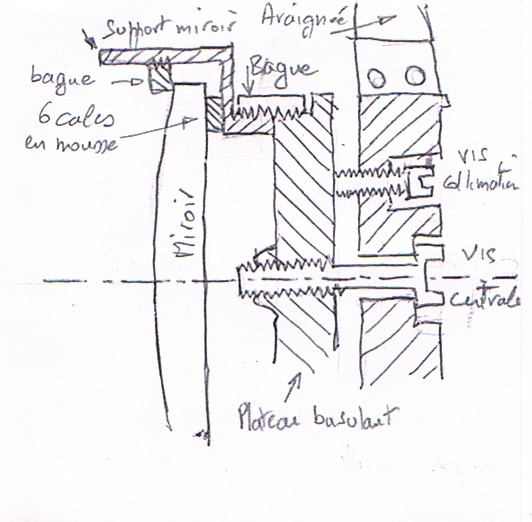 Support miroir
Araignée
bague
Bague
6 cales
en mousse
Miroir
VIS
Collimation
VIS
centrale
Plateau basulant